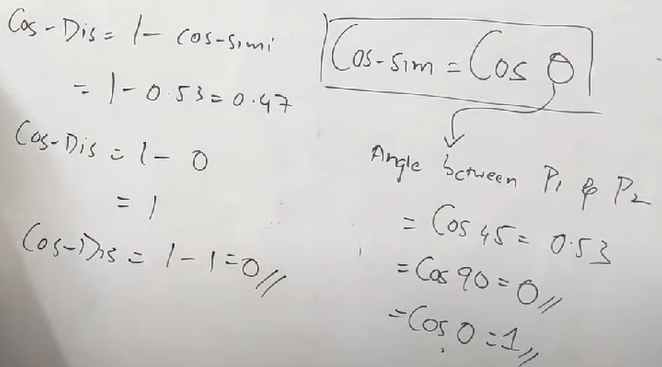 Cos-Dis = 1 - cos-simi
= 1 - 0.53 = 0.47
Cos-Dis = 1 - 0
= 1
Cos-Dis = 1 - 1 = 0 //
Cos-sim = Cos θ
Angle between P₁ & P₂
= Cos 45 = 0.53
= Cos 90 = 0 //
= Cos 0 = 1 //